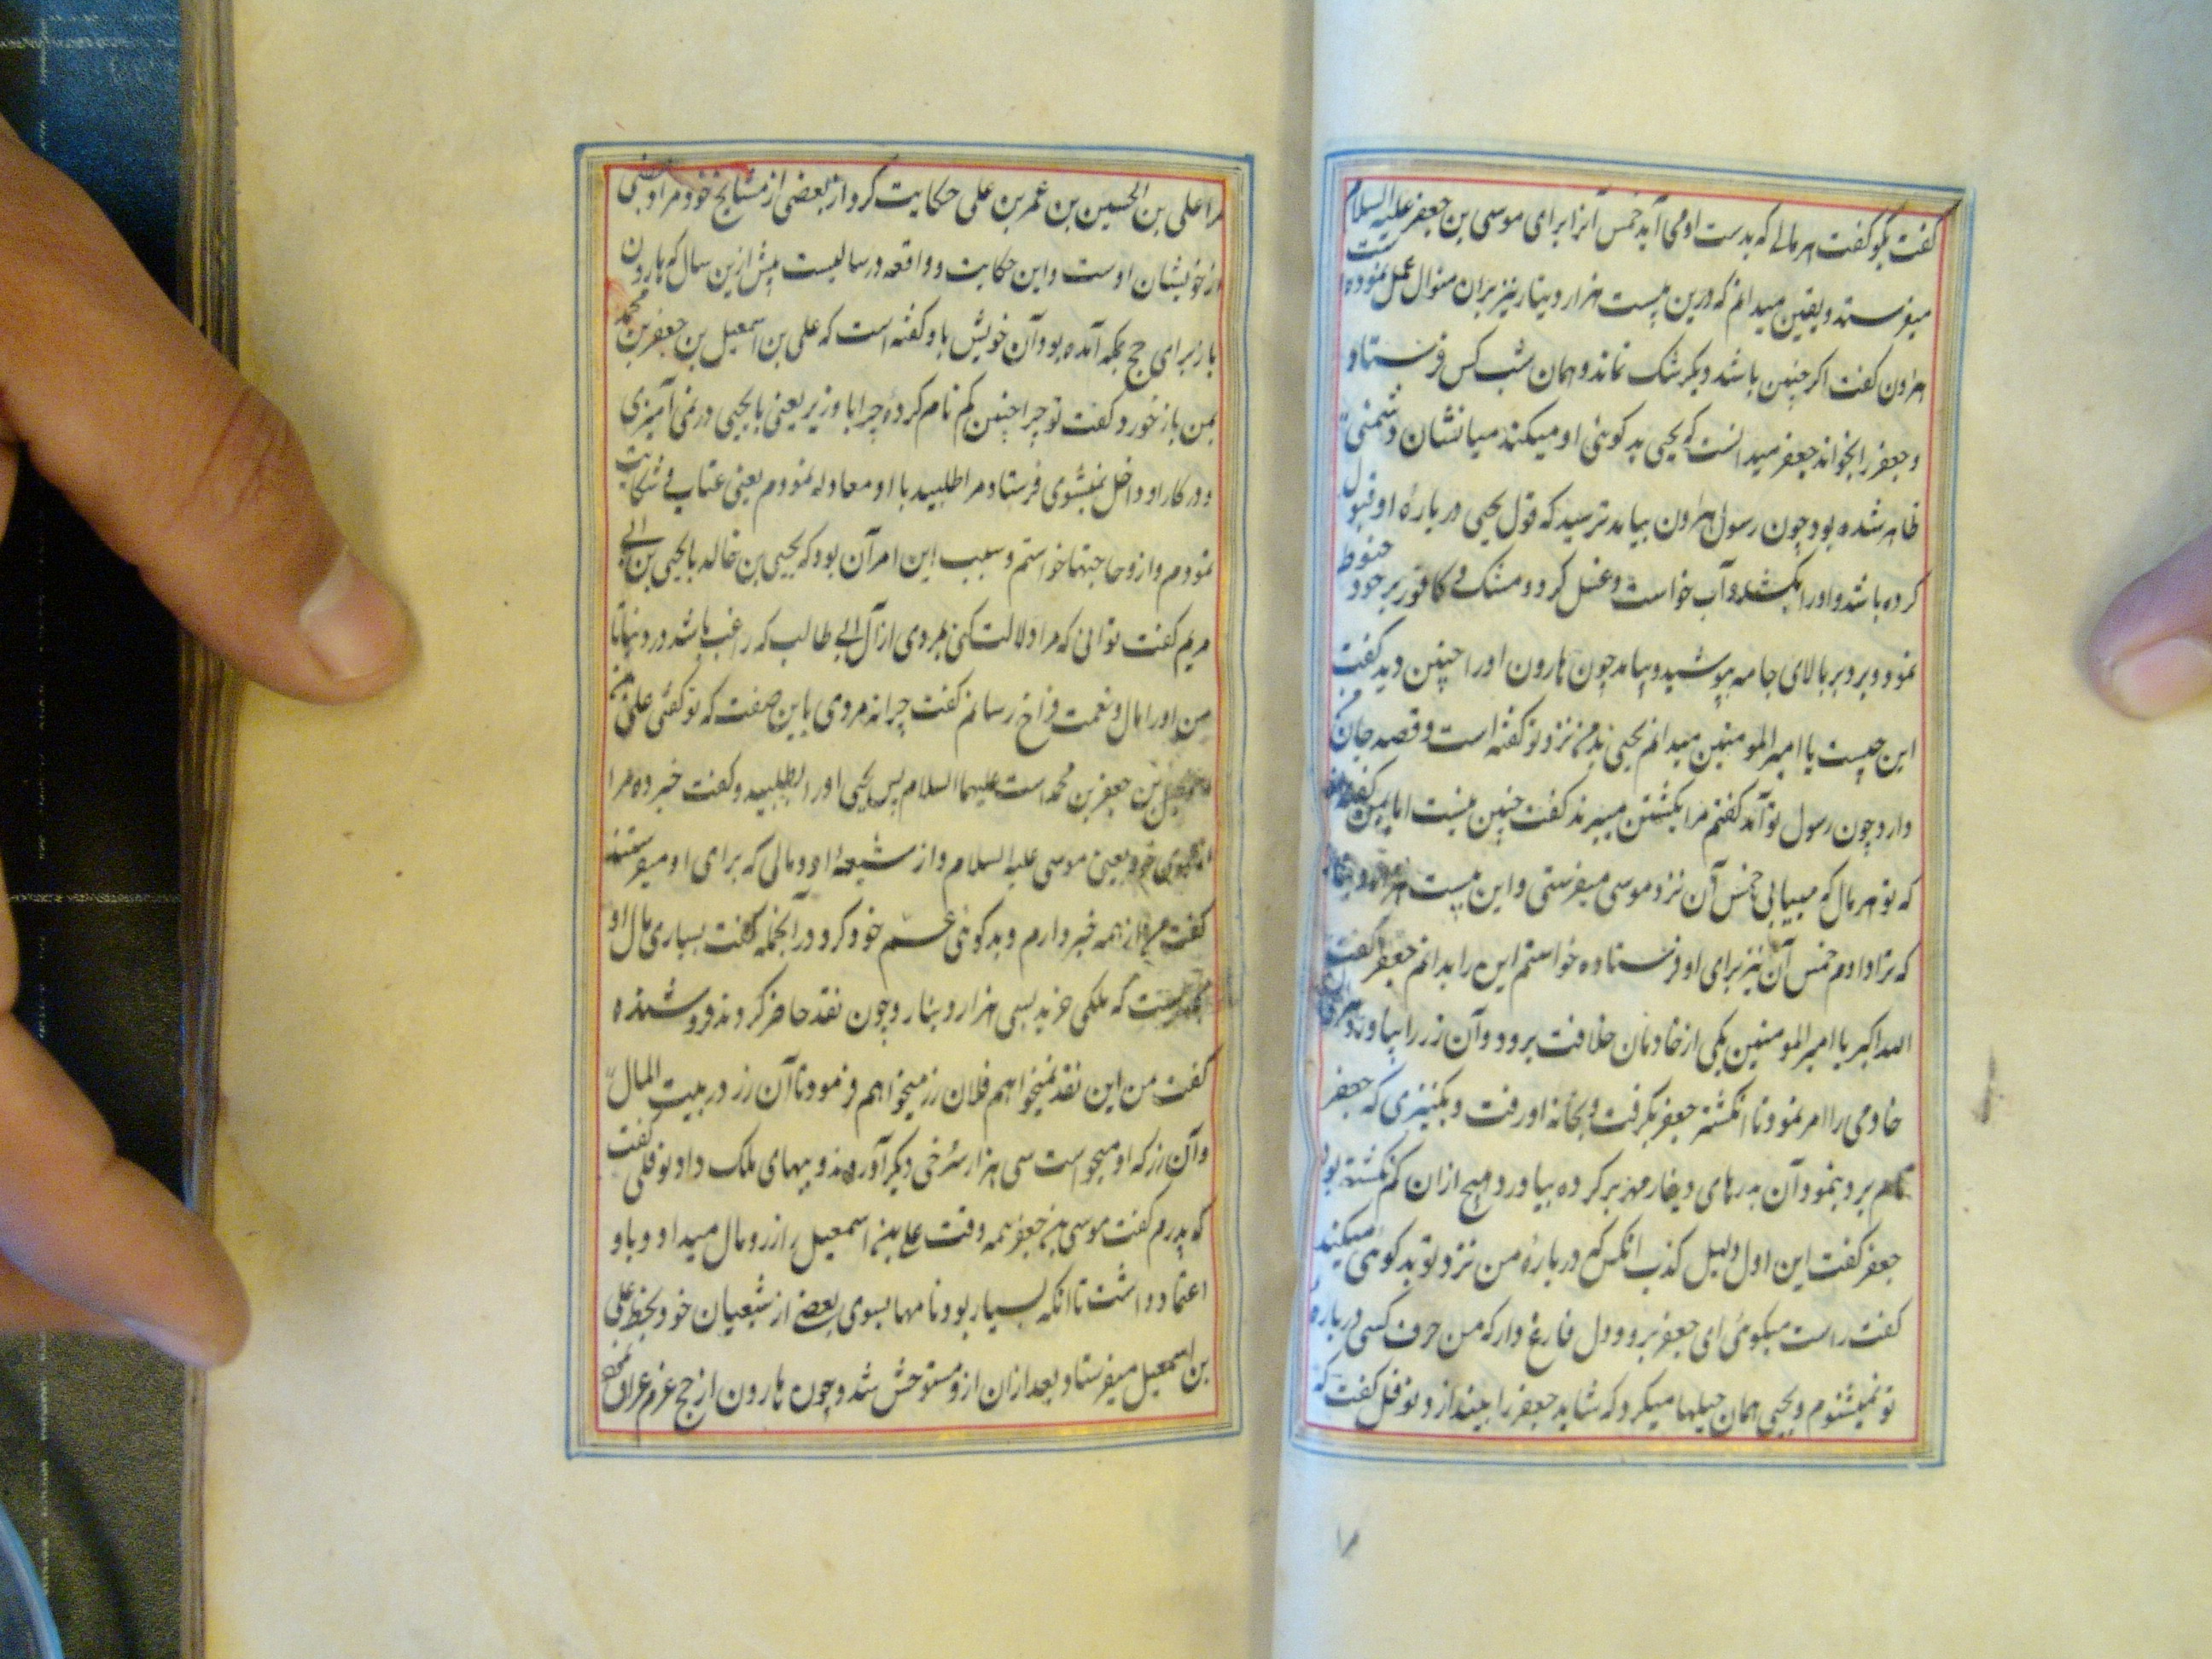 گفت بگو گفت هر مالے که بدست او می آید خمس آنرا برای موسی بن جعفر علیه السلام
میفرستد و یقین میدانم که درین بیست هزار دینار نیز بران منوال عمل نموده است
هارون گفت اگر چنین باشد دیگر شک نماند و همان شب کس فرستاد
و جعفر را بخواند جعفر میدانست که یحیی بدگوئی او میکند میانشان دشمنی
ظاهر شده بود چون رسول هارون بیامد ترسید که قول یحیی در بارهٔ او قبول
کرده باشد و او را بکشد و آب خواست و غسل کرد و مشک و کافور بر خود حنوط
نمود و برد بر بالای جامه بپوشید و بیامد چون هارون او را چنین دید گفت
این چیست یا امیر المومنین میدانم یحیی بد من نزد تو گفته است و قصد جان من
دارد چون رسول تو آمد گفتم مرا بکشتن میبرند گفت چنین نیست اما بمن گفتند
که تو هر مال که مییابی خمس آن نزد موسی میفرستی و این بیست هزار دینار
که ترا دادم خمس آن نیز برای او فرستاده خواستم این را بدانم جعفر گفت
الله اکبر یا امیر المومنین یکی از خادمان خلافت برود و آن زر را بیاورد
خادمی را امر نمود تا انگشتر جعفر بگرفت و بخانه او رفت و بکنیزی که جعفر
نام برد بنمود آن بدرهای دینار مهر بر کرده بیاورد و هیچ ازان کم نگشته بود
جعفر گفت این اول دلیل کذب انکس که در بارهٔ من نزد تو بدگوئی میکند
گفت راست میگوئی ای جعفر برو و دل فارغ دار که من حرف کسی در باره
تو نمیشنوم و یحیی همان حیلها میکرد که شاید جعفر را بیندازد و نوفلی گفت که
مرا
مرا علی بن الحسین بن عمر بن علی حکایت کرد از بعضی از مشایخ خود مراد بعضی
از خویشان اوست و این حکایت و واقعه در سالیست پیش ازین سال که هارون
باز برای حج بمکه آمده بود آن خویش باو گفته است که علی بن اسمعیل بن جعفر بن محمد
بمن باز خورد و گفت تو چرا چنین گم نام کردهٔ چرا با وزیر یعنی با یحیی در نمی آمیزی
و در کار او داخل نمیشوی فرستاد مرا طلبید با او معادله نمودم یعنی عتاب و شکایت
نمودم و ازو حاجتها خواستم و سبب این امر آن بود که یحیی بن خالد با یحیی بن ابی
مریم گفت توانی که مرا دلالت کنی بمردی از آل ابی طالب که راغب باشد در دنیا تا
من او را مال و نعمت فراخ رسانم گفت چرا نه مردی باین صفت که تو گفتی علی بن
اسمعیل بن جعفر بن محمد است علیهما السلام پس یحیی او را طلبید و گفت خبر ده مرا
از عموی خود یعنی موسی علیه السلام و از شیعهٔ او و مالی که برای او میفرستند
گفت من از همه خبر دارم و بدگوئی عم خود کرد در آنجمله گفت بسیاری مال او
بحدیست که ملکی خرید بسی هزار دینار و چون نقد حاضر کردند فروشنده
گفت من این نقد نمیخواهم فلان زر میخواهم فرمود تا آن زر در بیت المال
و آن زر که او میخواست سی هزار سرخی دیگر آوردند و ببهای ملک داد نوفلی گفت
که پدرم گفت موسی بن جعفر همه وقت علی بن اسمعیل را زر و مال میداد و باو
اعتماد داشت تا انکه بسیار بود نامها بسوی بعضے از شیعیان خود بخط علی
بن اسمعیل میفرستاد بعد ازان ازو مستوحش شد و چون هارون از حج عزم عراق